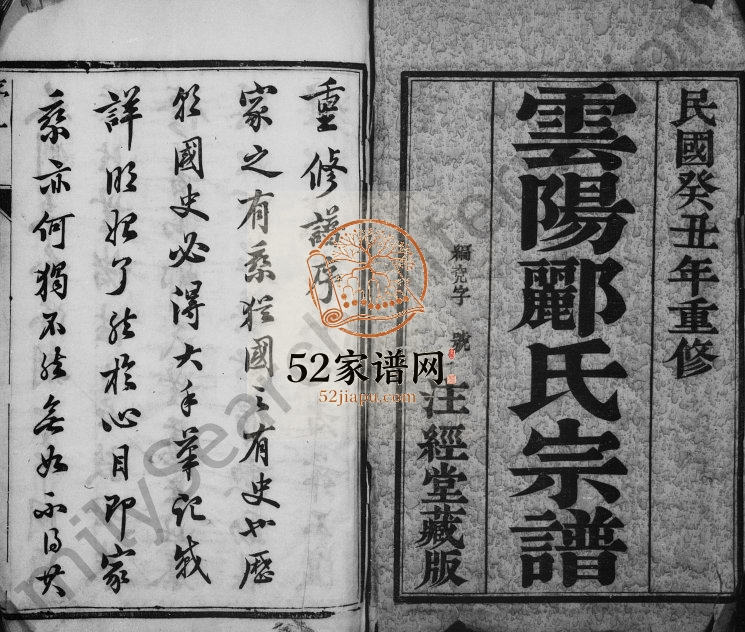 民國癸丑年重修
雲陽酈氏宗譜
編克字 號
注經堂藏版
重修譜序
家之有乘猶國之有史也歷
觀國史必得大手筆記載
詳明始了然於心目即家
乘亦何獨不然無如不得其
52家谱网
52jiapu.com
FamilySearch